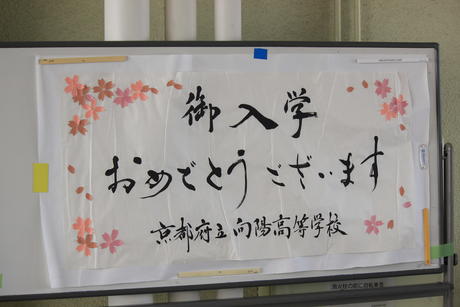 御入学
おめでとうございます
京都府立向陽高等学校